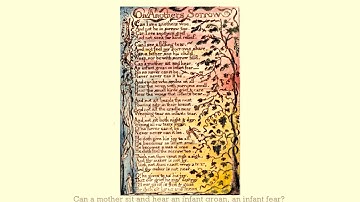 On Anothers Sorrow
Can I see anothers woe,
And not be in sorrow too.
Can I see anothers grief,
And not seek for kind relief.
Can I see a falling tear,
And not feel my sorrows share,
Can a father see his child,
Weep, nor be with sorrow fill'd.
Can a mother sit and hear,
An infant groan an infant fear
No no never can it be,
Never never can it be.
And can he who smiles on all
Hear the wren with sorrows small,
Hear the small birds grief & care
Hear the woes that infants bear
And not sit beside the nest
Pouring pity in their breast
And not sit the cradle near
Weeping tear on infants tear
And not sit both night & day,
Wiping all our tears away
O! no never can it be,
Never never can it be.
He doth give his joy to all
He becomes an infant small
He becomes a man of woe
He doth feel the sorrow too
Think not thou canst sigh a sigh
And thy maker is not by
Think not thou canst weep a tear
And thy maker is not near
O! he gives to us his joy
That our grief he may destroy
Can a mother sit and hear an infant groan, an infant fear?